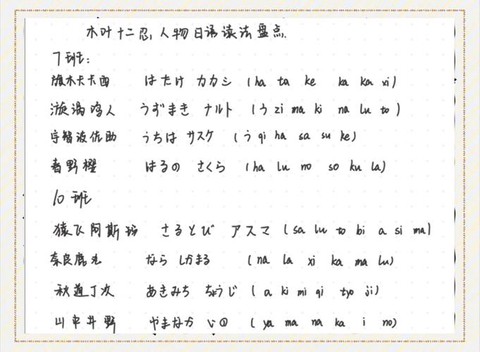 木叶十二忍人物日语读法盘点
7班:
旗木卡卡西 はたけ カカシ (ha ta ke ka ka xi)
漩涡鸣人 うずまき ナルト (う zi ma ki na lu to)
宇智波佐助 うちは サスケ (う qi ha sa su ke)
春野樱 はるの さくら (ha lu no so ku la)
10班
猿飞阿斯玛 さるとび アスマ (sa lu to bi a si ma)
奈良鹿丸 なら しかまる (na la xi ka ma lu)
秋道丁次 あきみち ちょうじ (a ki mi qi tyo ji)
山中井野 やまなか いの (ya ma na ka i no)